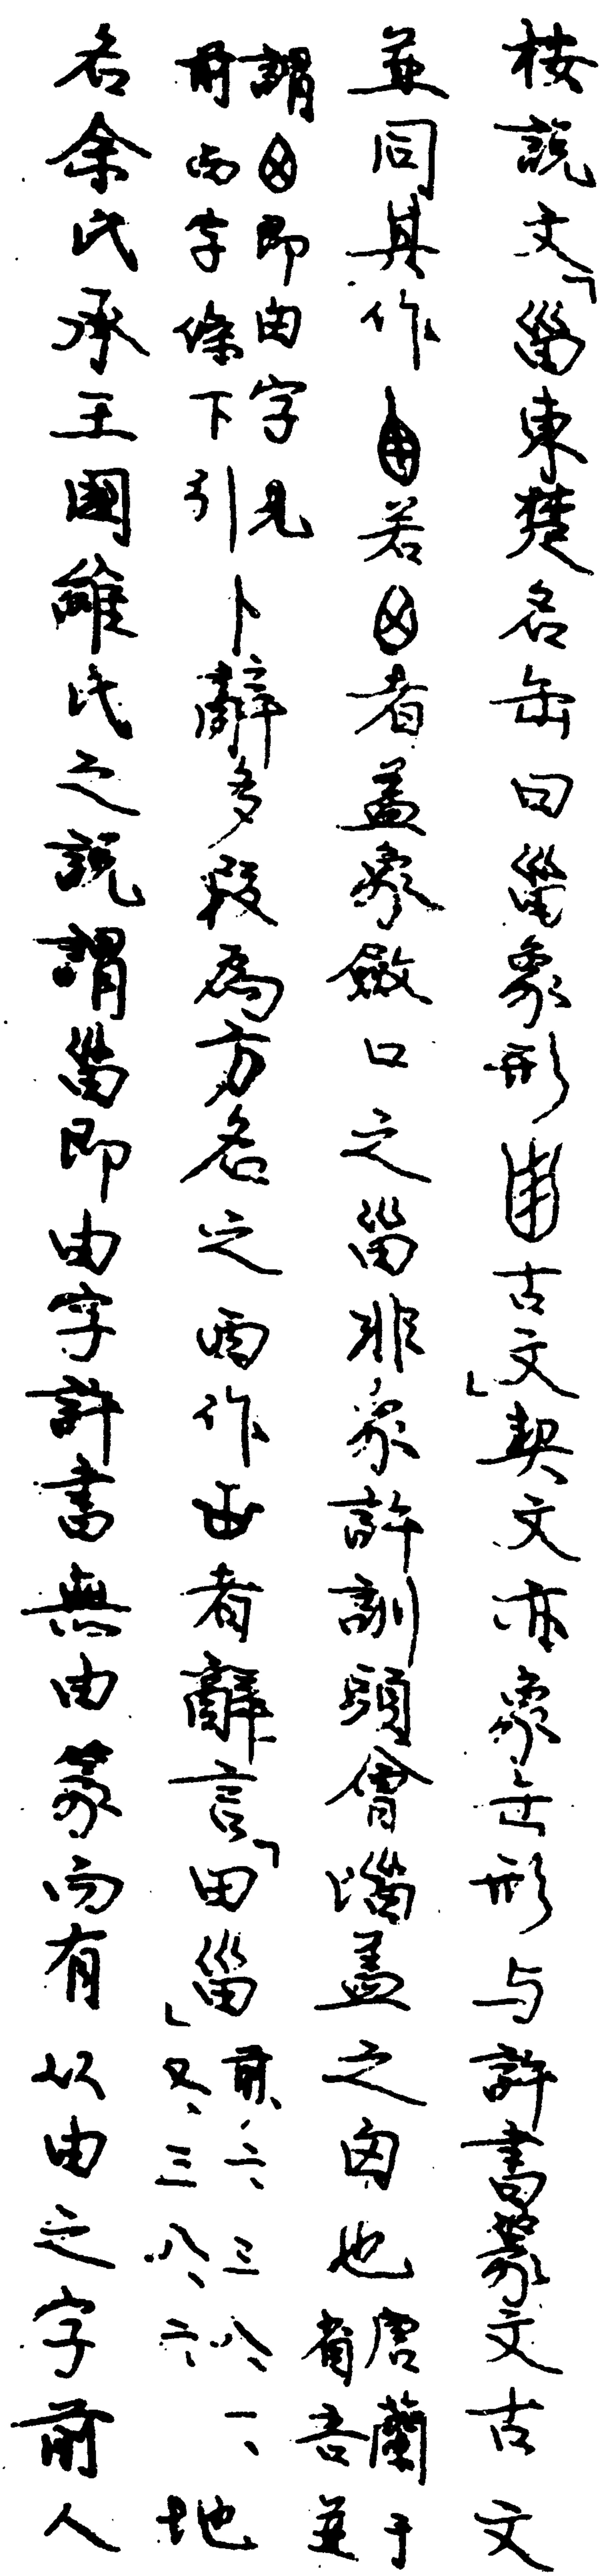 桉說文「甾東楚名缶曰甾象形古文」契文亦象缶形与許書篆文古文
並同其作若者蓋象斂口之甾非象許訓頭會𡿺蓋之囟也唐蘭于省吾並
謂即由字見前西字條下引卜辭多叚為方名之西作者辭言「田甾」前、六、三八、一、又、三八、六、地
名余氏承王國維氏之說謂甾即由字許書無由篆而有从由之字前人